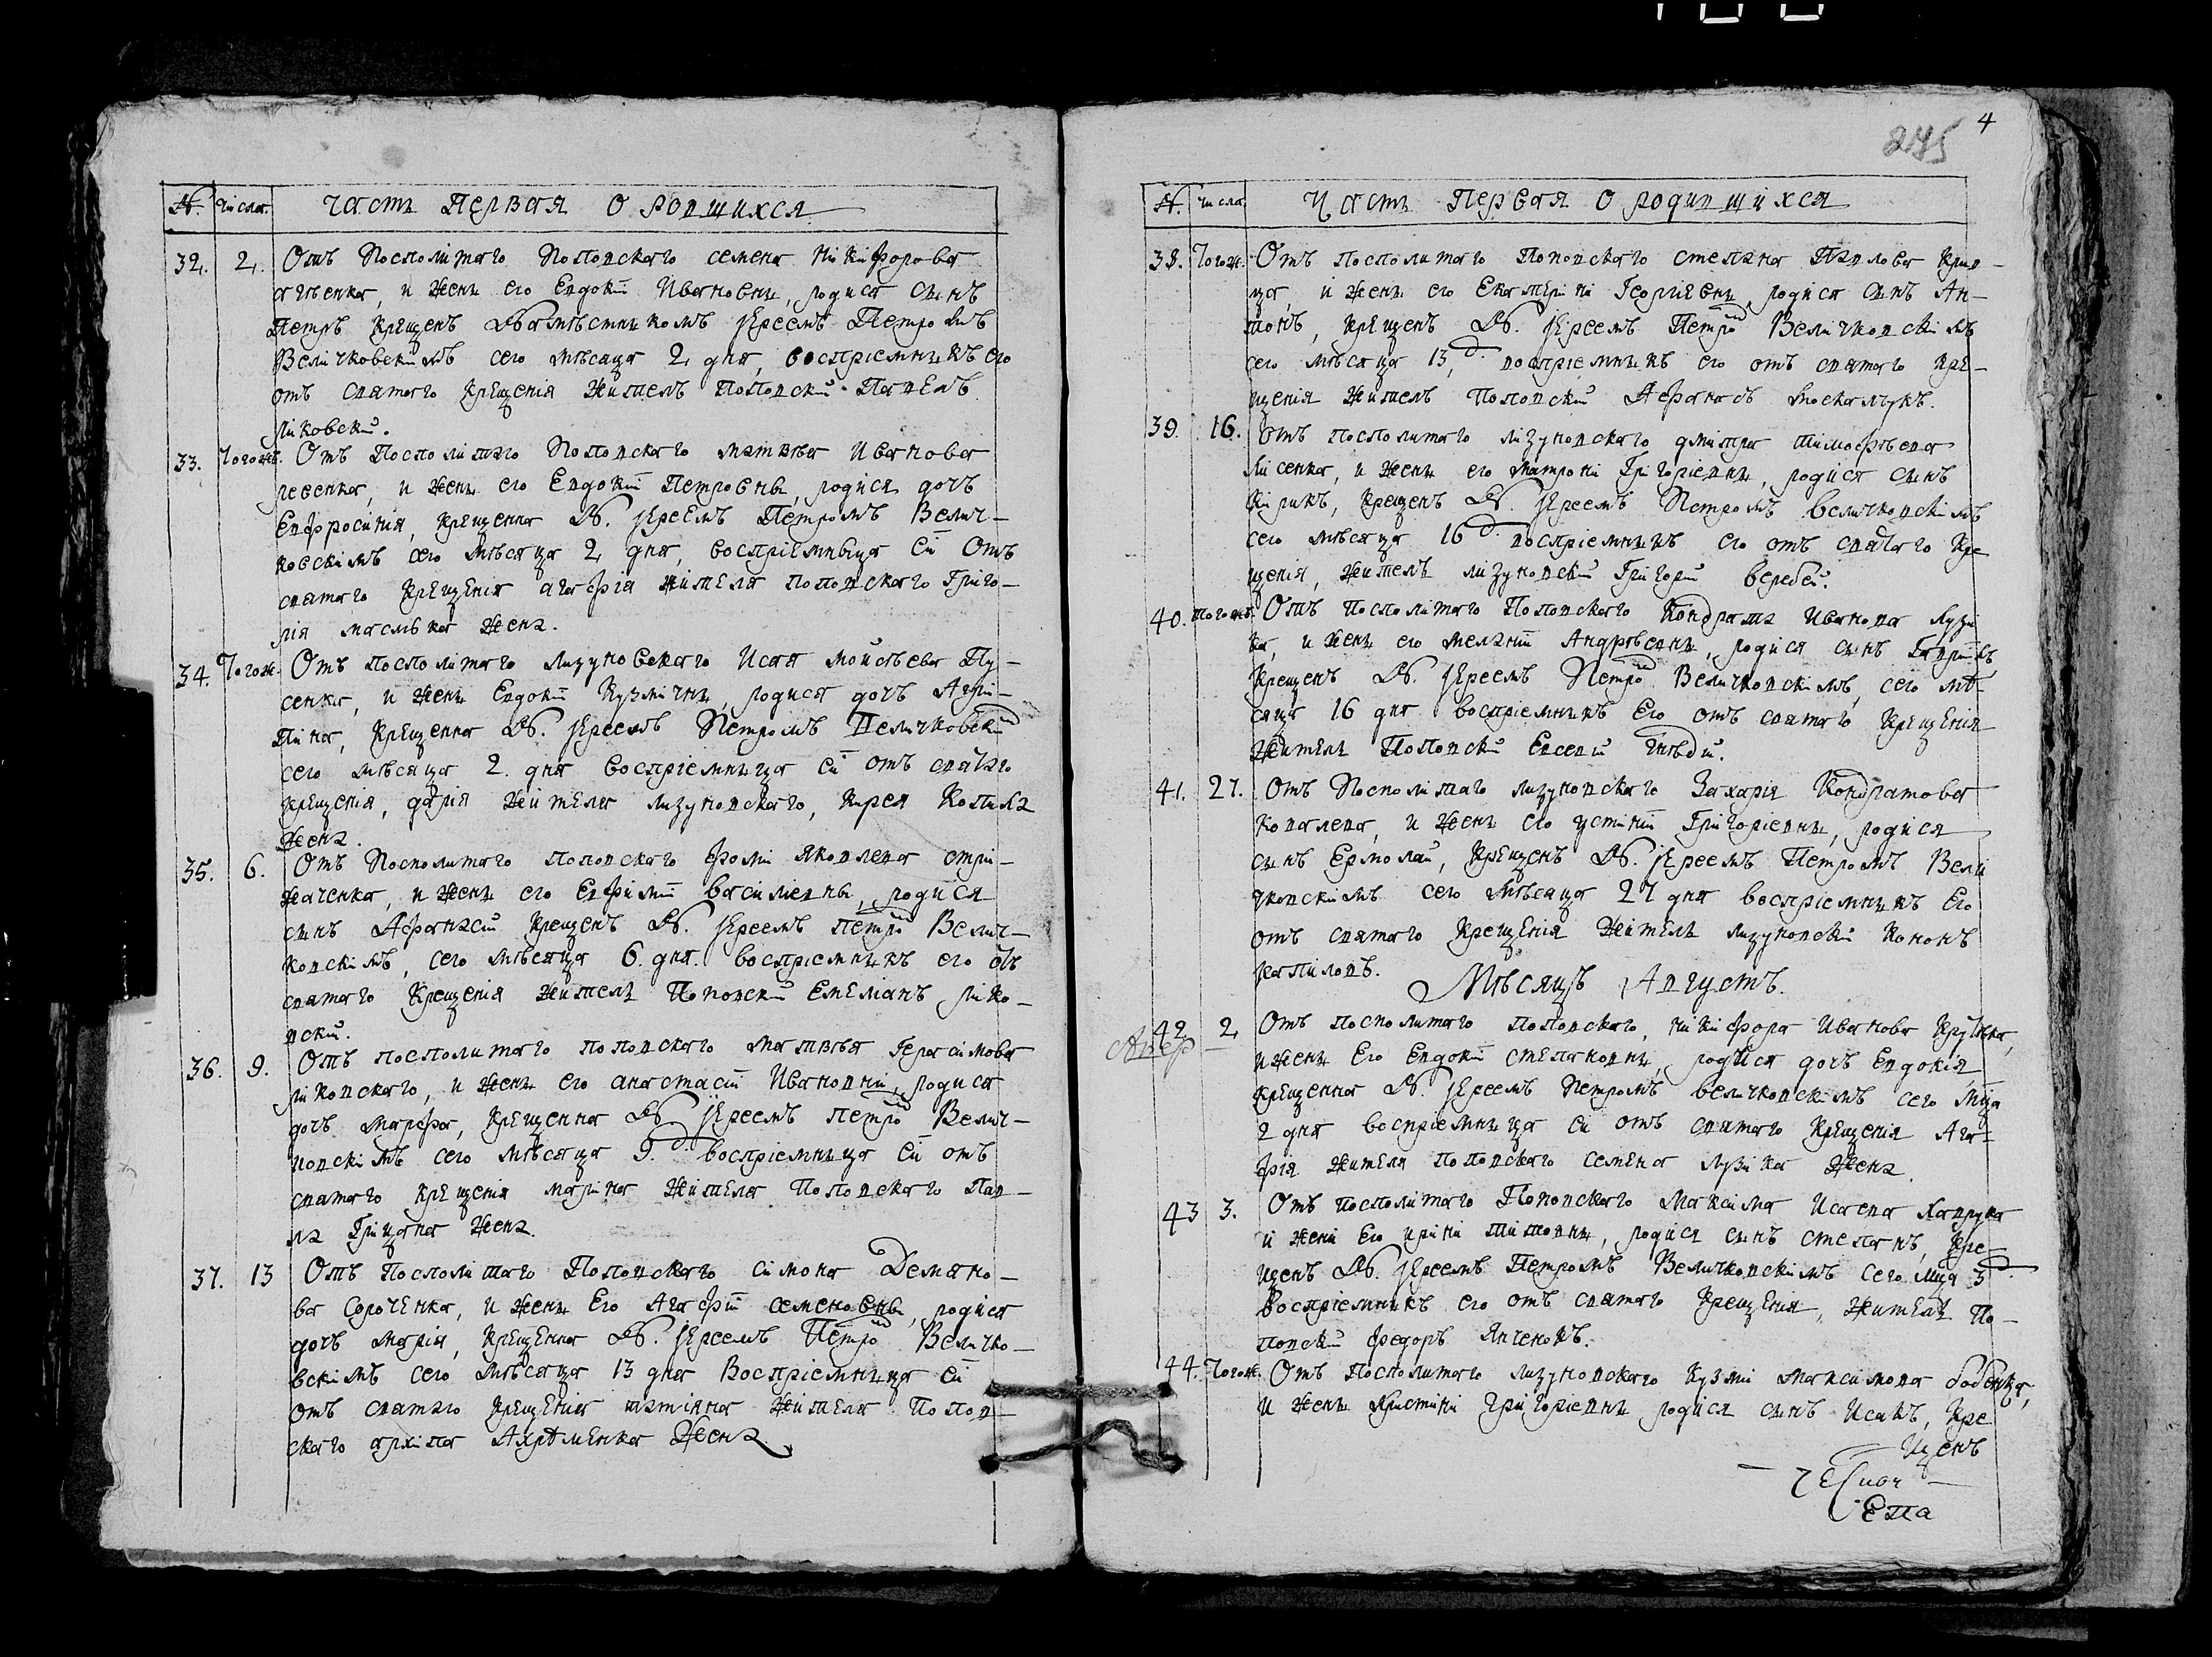 №. числа. Часть Первая О родшихся
32. 2. Отъ посполитаго поповскаго семена никифорова
и жены его Евдокіи Ивановны, родися сынъ
Петръ крещенъ намѣстникомъ іереемъ Петромъ
Величковскимъ сего мѣсаца 2 дня, воспріемникъ его
отъ святаго крещенія житель поповскій Павелъ
ликовскій.
33. Тогожъ. Отъ посполитаго поповскаго матвѣя Иванова
и жены его Евдокіи Петровны, родися дочь
Евфросинія, крещенна Н. іереемъ Петромъ Велич-
ковскімъ сего мѣсяца 2 дня, воспріемница ей отъ
святаго крещенія агафія жителя поповскаго Григо-
рія жена.
34. Тогож. Отъ посполитаго лизуновскаго Исая мойсѣева Пу-
сенка, и жены Евдокіи Кузмичны, родися дочь Агрі-
пина, крещенна Н. іереемъ Петромъ Величковскі
сего мѣсяца 2. дня воспріемница ей отъ святаго
крещенія, дарія жителя лизуновскаго, жена.
35. 6. Отъ посполитаго поповскаго фомы яковлева стри-
жаченка, и жены его Евфиміи василіевны, родися
сынъ Афанасій крещенъ Н. іереемъ Петро Велич-
ковскімъ, сего мѣсяца 6. дня. воспріемникъ его отъ
святаго крещенія житель Поповскій Емеліанъ лико-
вскій.
36. 9. Отъ посполитаго поповскаго матвѣя Герасимова
ликовскаго, и жены его анастасіи Ивановни, родися
дочь марфа, крещенна Н. іереемъ петро Велич-
ковскімъ сего мѣсяца 9. д. воспріемница ей отъ
святаго крещенія марина жителя Поповскаго Пав-
ла Грицана жена.
37. 13 Отъ посполитаго Поповскаго симона Демяно-
ва Сороченка, и жены его Агафіи семеновны, родися
дочь марія, крещенна Н. іереемъ Петро Величко-
вскімъ сего мѣсяца 13 дня Воспріемница ей
отъ святаго крещенія татіана жителя Попов-
скаго архипа Ахраменка жена
4
245
№. числа. Часть Первая О родившихся
38. Тогож. Отъ посполитаго Поповскаго степана Павлова
и жены его Екатерини Георгіевны, родися сынъ Ан-
тонъ, крещенъ Н. іереемъ Петро Величковскімъ
сего мѣсяца 13, д. воспріемникъ его отъ святаго кре-
щенія житель поповскій Афанасъ Москальукъ.
39. 16. Отъ посполитаго лизуновскаго дмитра тимофѣева
лисенка, и жены его матрони Григоріевны, родися сынъ
Кирикъ, крещенъ Н. іереемъ Петромъ величковскімъ
сего мѣсяца 16 д. воспріемникъ его отъ святаго кре
щенія, житель лизуновскій Григорій веребей.
40. Тогожъ. Отъ посполитаго Поповскаго Кондрата Иванова Лузи
ка, и жены его меланіи Андрѣевны, родися сынъ Гавріилъ
крещенъ Н. іереемъ Петро Величковскімъ, сего мѣ-
сяця 16 дня воспріемникъ его отъ святаго крещенія
житель Поповскій Евсевій Гнѣдій.
41. 27. Отъ посполитаго лизуновскаго Захарія Кондратова
Ковалева, и жены его устиніи Григоріевны, родися
сынъ Ермолай, крещенъ Н. іереемъ Петромъ Вели
чковскімъ сего мѣсаца 27 дня воспріемникъ его
отъ святаго крещенія житель лизуновскій Кононъ
капиловъ.
Мѣсяцъ Августъ.
42 2 Отъ посполитаго поповскаго, никифора Иванова
и жены его Евдокіи степановны, родися дочь Евдокія,
крещенна Н. іереемъ Петромъ величковскімъ сего мца
2 дня воспріемница ей отъ святаго крещенія Ага-
фія жителя поповскаго семена лузика жена.
43 3. Отъ посполитаго Поповскаго максима Исаева Хавруна
и жени его ирини титовны, родися сынъ степанъ, кре
щенъ Н. іереемъ Петромъ Величковскімъ сего мца 3 д.
воспріемникъ его отъ святаго крещенія, житель По-
повскій федоръ Янченокъ.
44. Тогож. Отъ посполитаго лизуновскаго Кузми максимова бабенка,
и жены христини Григоріевны родися сынъ Исакъ, кре
щенъ